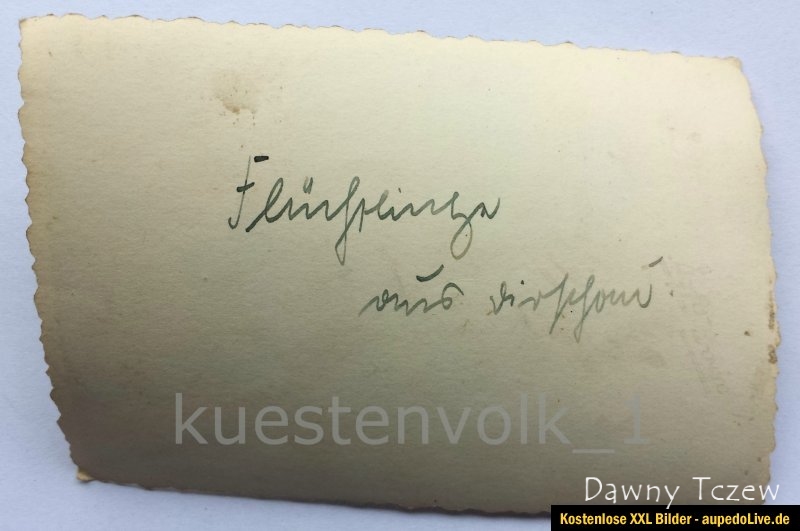 Flüchtlinge
aus Dirschau.
kuestenvolk_1
Dawny Tczew
Kostenlose XXL Bilder - aupedoLive.de